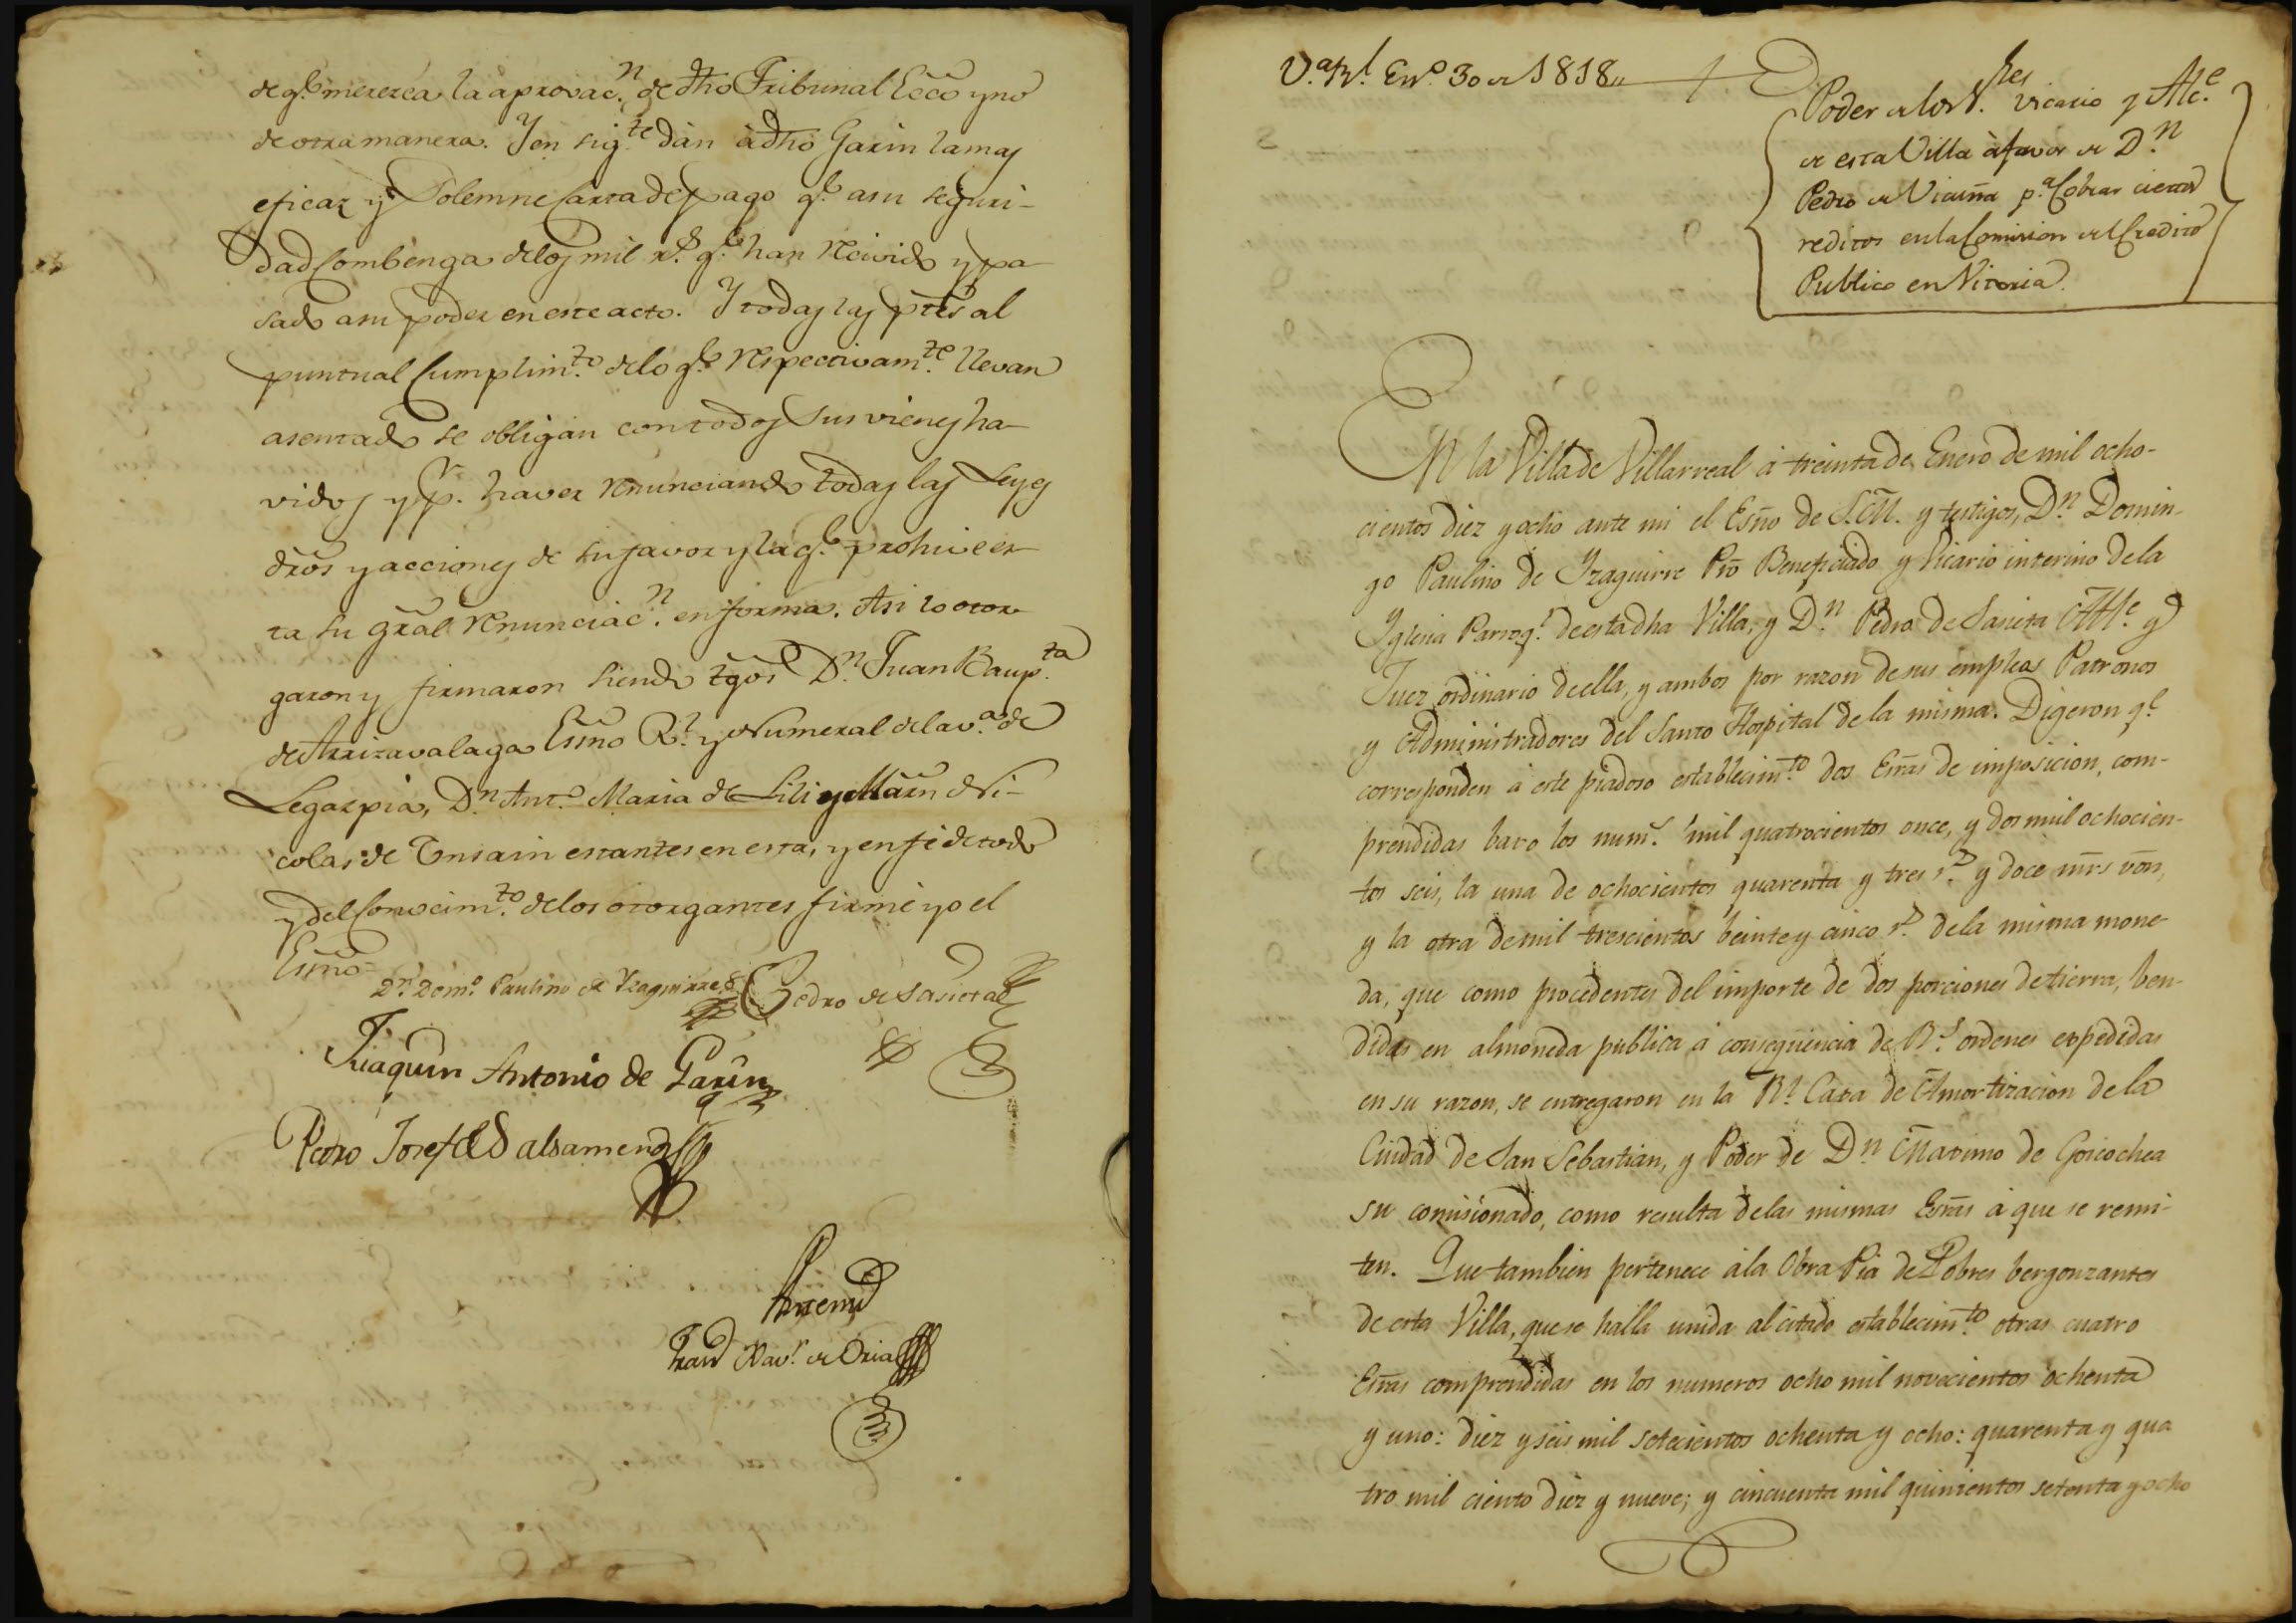 de q.e merezca la aprovac.n de dho Tribunal Ecco y no
de otra manera. Y en sig.te dán à dho Garin la mas
eficaz y Solemne Carta de pago q.e a su seguri-
dad Combenga de los mil r.s q.e han recivido y pa-
sado a su poder en este acto. Y todas las ptes al
puntual Cumplim.to de lo q.e respectivam.te llevan
asentado se obligan con todos sus vienes ha-
vidos y p.r haver renunciando todas las Leyes
dros y acciones de su favor y la q.e prohive es-
ta su gral renunciac.n en forma. Asi lo otor-
garon y firmaron siendo tgos D.n Juan Baup.ta
de Arrizavalaga Esno R.l y Numeral de la v.a de
Legazpia, D.n Ant.o Maria de Lili y Marn de Ni-
colas de Unsain estantes en esta, y en fe de todo
y del Conocim.to de los otorgantes firmé yo el
Esno
D.n Dom.o Paulino de Yzaguirre Pedro de Sasieta
Juaquin Antonio de Garin
Pedro Josef de Balsamendi
Antemi
Fran.co Xav.r de Oria
V.a R.l En.o 30 de 1818,,
Poder de los S.res Vicario y Alc.e
de esta Villa à favor de D.n
Pedro de Vicuña p.a Cobrar ciertos
reditos en la Comision del Credito
Publico en Vitoria.
En la Villa de Villarreal á treinta de Enero de mil ocho-
cientos diez y ocho ante mi el Esno de S.M. y testigos, D.n Domin-
go Paulino de Yzaguirre Pro Beneficiado y Vicario interino de la
Yglesia Parroq.l de esta dha Villa, y D.n Pedro de Sasieta Alc.e y
Juez ordinario de ella, y ambos por razon de sus empleos Patronos
y Administradores del Santo Hospital de la misma. Digeron q.e
corresponden á este piadoso establecim.to dos Esras de imposicion, com-
prendidas baxo los num.s mil quatrocientos once, y dos mil ochocien-
tos seis, la una de ochocientos quarenta y tres r.s y doce mrs von,
y la otra de mil trescientos beinte y cinco r.s de la misma mone-
da, que como procedentes del importe de dos porciones de tierra, ben-
didas en almoneda publica á conseqüencia de R.s ordenes expedidas
en su razon, se entregaron en la R.l Caxa de Amortizacion de la
Ciudad de San Sebastian, y Poder de D.n Maximo de Goicochea
su comisionado, como resulta de las mismas Esras á que se remi-
ten. Que tambien pertenece á la Obra Pia de Pobres bergonzantes
de esta Villa, que se halla unida al citado establecim.to otras cuatro
Esras comprendidas en los numeros ocho mil novecientos ochenta
y uno: diez y seis mil setecientos ochenta y ocho: quarenta y qua
tro mil ciento diez y nueve; y cincuenta mil quinientos setenta y ocho